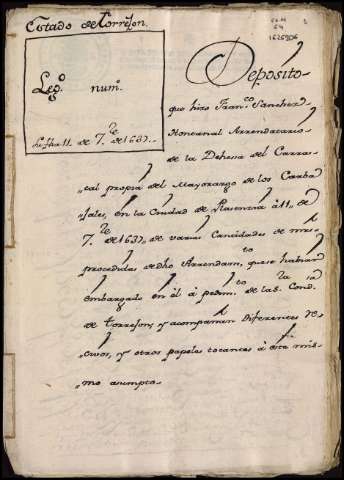 Estado de Torrejon.
Leg.º num.º
Su fha 11. de 7.re de 1637.
Deposito
que hizo Fran.co Sanchez
Honcarrial Arrendatario
de la Dehesa del Carras
cal propia del Mayorazgo de los Carba
jales, en la Ciudad de Plasencia à 11, de
7.re de 1637, de varias Cantidades de mrs
procedidas de dho Arrendam.to, que se habian
embargado en él â pedim.to de la S.a Cond.a
de Torrejon, y acompañan diferentes re
civos, y otros papeles tocantes â este mis
mo asumpto.